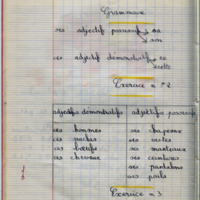 Grammaire
ses adjectif possessif sa
son
ces adjectif démonstratif ce
cette
Exercice n°2
adjectifs démonstratifs adjectifs possessifs
ces hommes ses
ces ses vestes
ces bœufs ses manteaux
ces chevaux ses
ses pantalons
ses
Exercice n°3